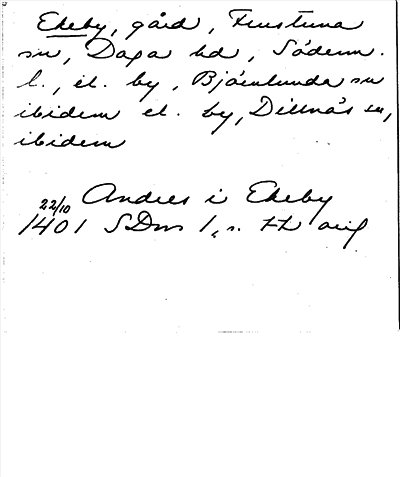 Ekeby, gård, Frustuna
sn, Daga hd, Söderm.
l., el. by, Björnlunda sn
ibidem el. by, Dillnäs sn,
ibidem
Andres i Ekeby
22/10
1401 SDns 1, s. 77 orig